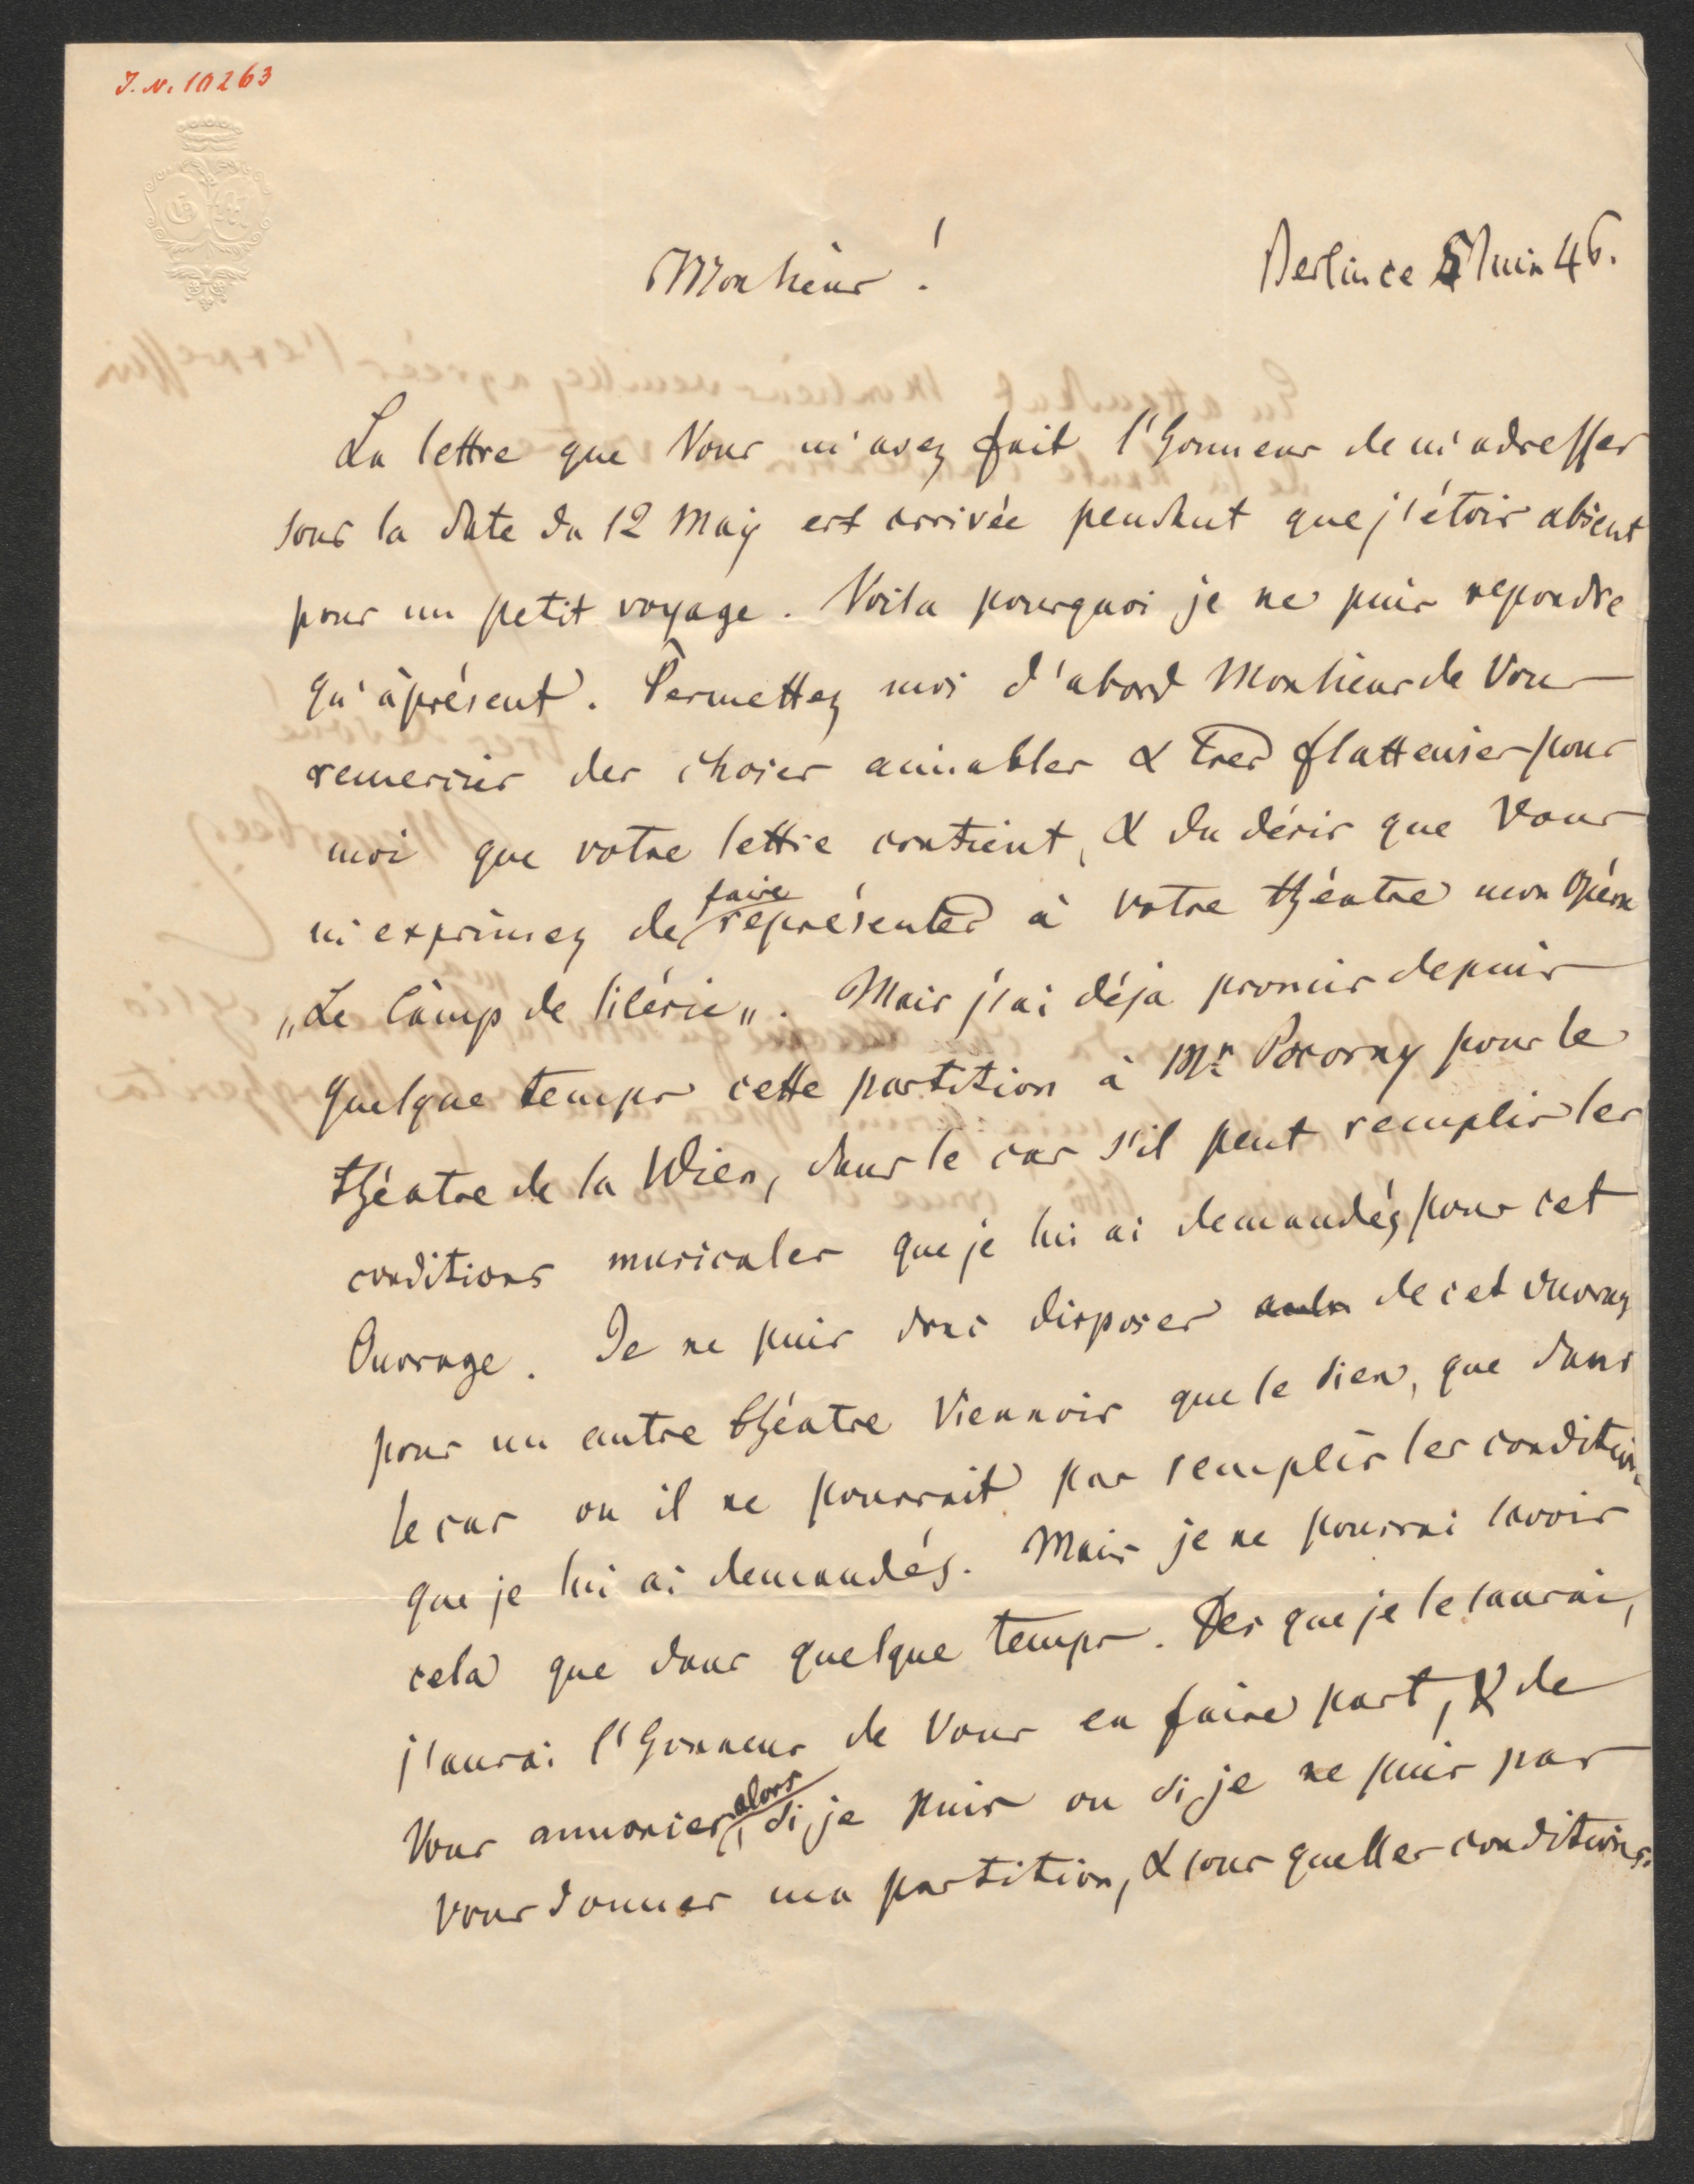 J. N. 10263
Monsieur!
Berlin ce 5 Juin 46.
La lettre que Vous m'avez fait l'honneur de m'adresser
sous la date du 12 May est arrivée pendant que j'étois absent
pour un petit voyage. Voila pourquoi je ne puis repondre
qu'àprésent. Permettez moi d'abord Monsieur de Vous
remercier des choses aimables & tres flatteuses pour
moi que votre lettre contient, & du désir que Vous
m'exprimez de faire représenter à votre théatre mon Opéra
„Le Camp de Silésie„. Mais j'ai déja promis depuis
quelque temps cette partition à Mr. Pocorny pour le
théatre de la Wien, dans le cas s'il peut remplir les
conditions musicales que je lui ai demandés pour cet
Ouvrage. Je ne puis donc disposer de cet ouvrag
pour un autre théatre Viennois que le sien, que dans
le cas ou il ne pourrait pas remplir les conditions
que je lui ai demandés. Mais je ne pourrai savoir
cela que dans quelque temps. Des que je le saurai,
j'aurai l'honneur de Vous en faire part, & de
Vous annoncer alors, si je puis ou si je ne puis pas
vous donner ma partition, & sous quelles conditions.